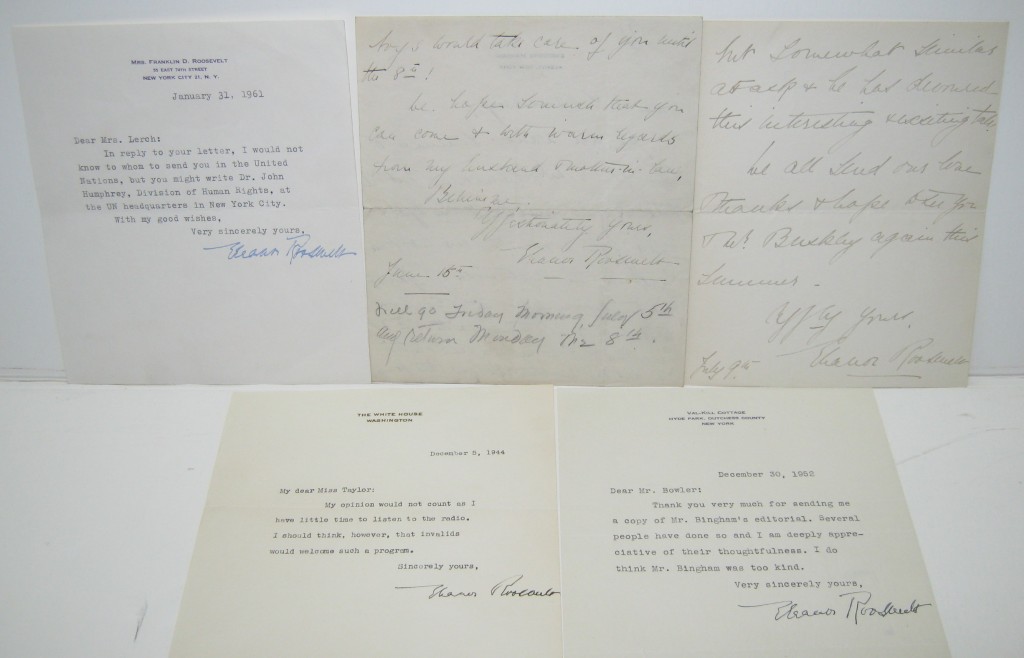 MRS. FRANKLIN D. ROOSEVELT
55 EAST 74TH STREET
NEW YORK CITY 21, N. Y.
January 31, 1961
Dear Mrs. Lerch:
In reply to your letter, I would not
know to whom to send you in the United
Nations, but you might write Dr. John
Humphrey, Division of Human Rights, at
the UN headquarters in New York City.
With my good wishes,
Very sincerely yours,
Eleanor Roosevelt
would take care of you until
the 8th!
We hope so much that you
can come & with warm regards
from my husband & mother-in-law,
Believe me
Affectionately yours,
Eleanor Roosevelt
June 15th
Will go Friday morning, July 5th
and return Monday the 8th.
but somewhat similar
& he has devoured
this interesting & exciting tale.
We all send our love
thanks & hope to see you
& Mr. Buckley again this
summer.
Affly yours,
Eleanor Roosevelt
July 9th
THE WHITE HOUSE
WASHINGTON
December 5, 1944
My dear Miss Taylor:
My opinion would not count as I
have little time to listen to the radio.
I should think, however, that invalids
would welcome such a program.
Sincerely yours,
Eleanor Roosevelt
VAL-KILL COTTAGE
HYDE PARK, DUTCHESS COUNTY
NEW YORK
December 30, 1952
Dear Mr. Bowler:
Thank you very much for sending me
a copy of Mr. Bingham's editorial. Several
people have done so and I am deeply appre-
ciative of their thoughtfulness. I do
think Mr. Bingham was too kind.
Very sincerely yours,
Eleanor Roosevelt